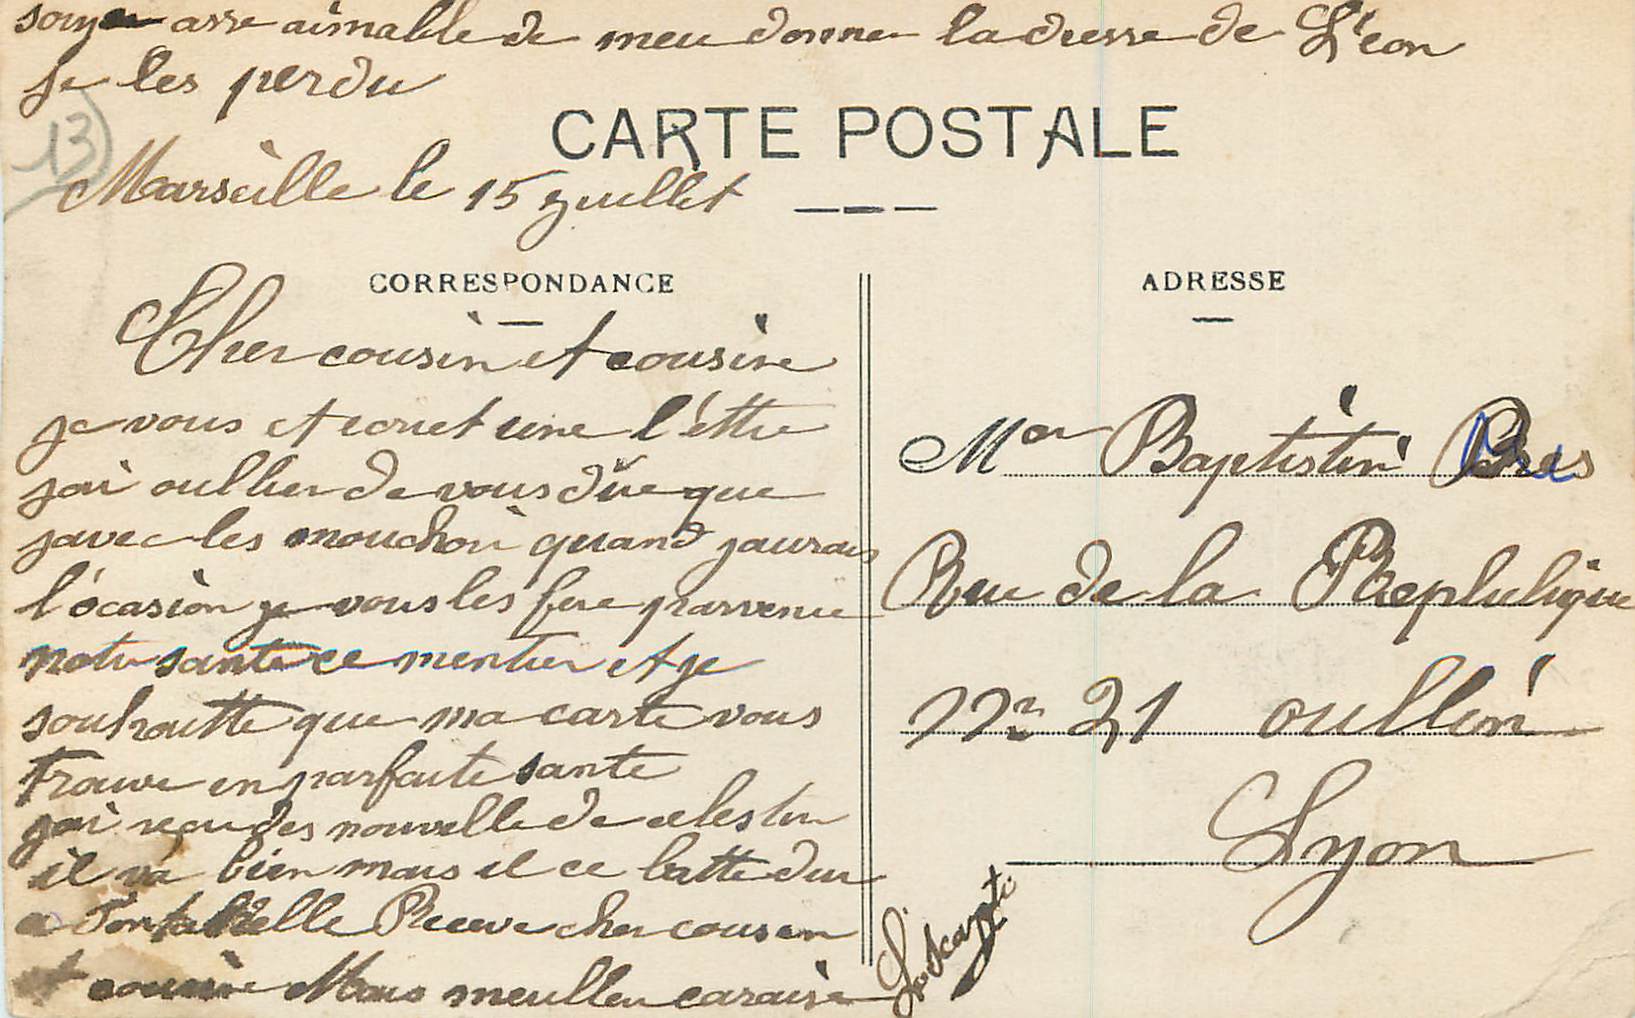 soyer asse aimable de meu donner ladresse de Léon
je les perdu
13
CARTE POSTALE
Marseille le 15 juillet
CORRESPONDANCE
Cher cousin et cousine
je vous et une léttre
jai oullier de vous dire que
javec les mouchoi quand jaurais
l'ócasion je vous les fere parvenir
notre sante ce mentien et je
souhaitte que ma carte vous
trouve en parfaite sante
jai reçu des nouvelle de celestin
il va bien mais il ce batte dur
a cher cousin
et cousine
ADRESSE
Mor Baptistin
Rue de la Replulique
21 oullin
Lyon